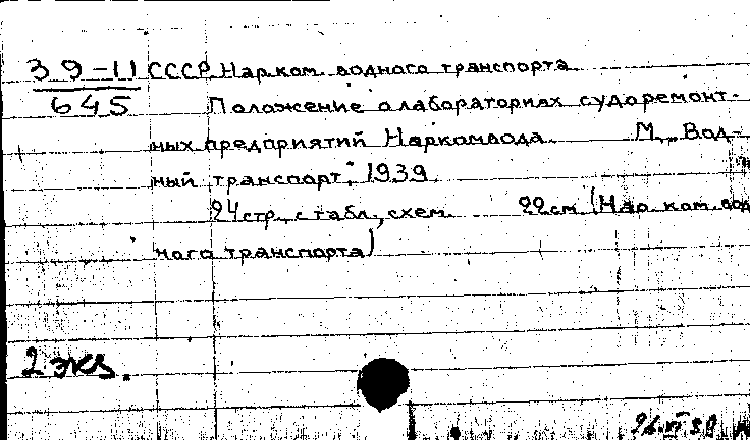 39-11 СССР. Нар.ком. водного транспорта.
645 Положение о лабораториях судоремонт-
ных предприятий Наркомвода. М., "Вод-
ный транспорт", 1939.
24 стр. с табл., схем. 22 см. (Нар. ком. вод
ного транспорта)
2 экз.